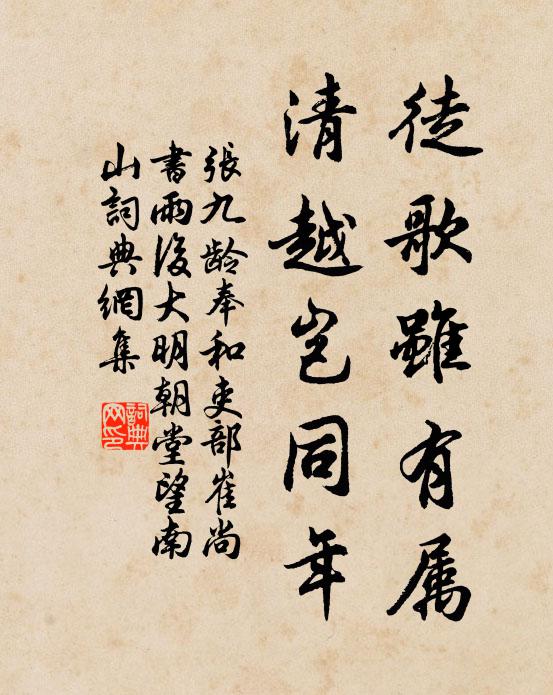 徒歌雖有属
清越豈同年
張九龄奉和吏部崔尚
書雨後大明朝堂望南
山詞典網集
詞典
网印